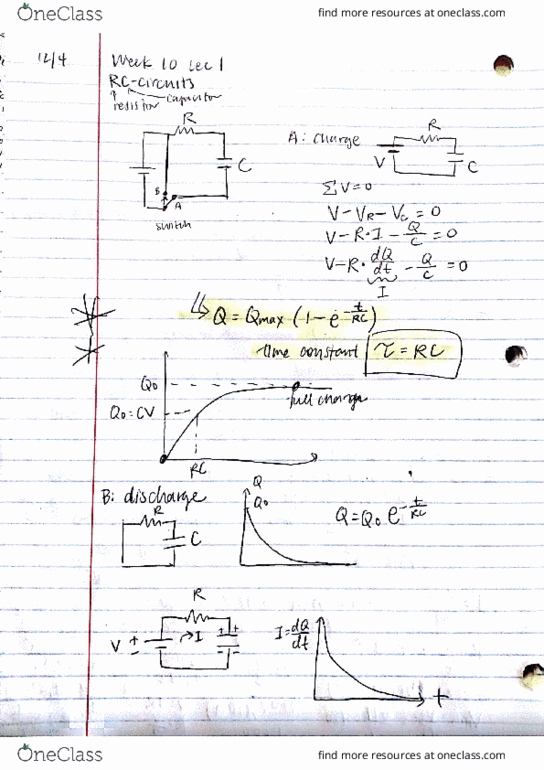 OneClass
find more resources at oneclass.com
12/4
Week 10 Lec 1
RC-circuits
resistor capacitor
R
C
B
A
switch
A: charge
R
V
C
ΣV=0
V-VR-Vc=0
V-R·I-Q/C=0
V-R·dQ/dt-Q/C=0
I
Q=Qmax(1-e^-t/RC)
time constant τ=RC
Q₀
full charge
Q₀=CV
RC
B: discharge
R
C
Q
Q₀
Q=Q₀e^-t/RC
R
V + -
→I
+ +
- -
I=dQ/dt
t
OneClass
find more resources at oneclass.com